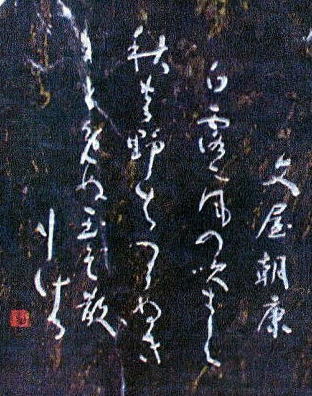 文屋朝康
白露に風の吹きしく
秋の野はつらぬき
とめぬ玉そ散
りける